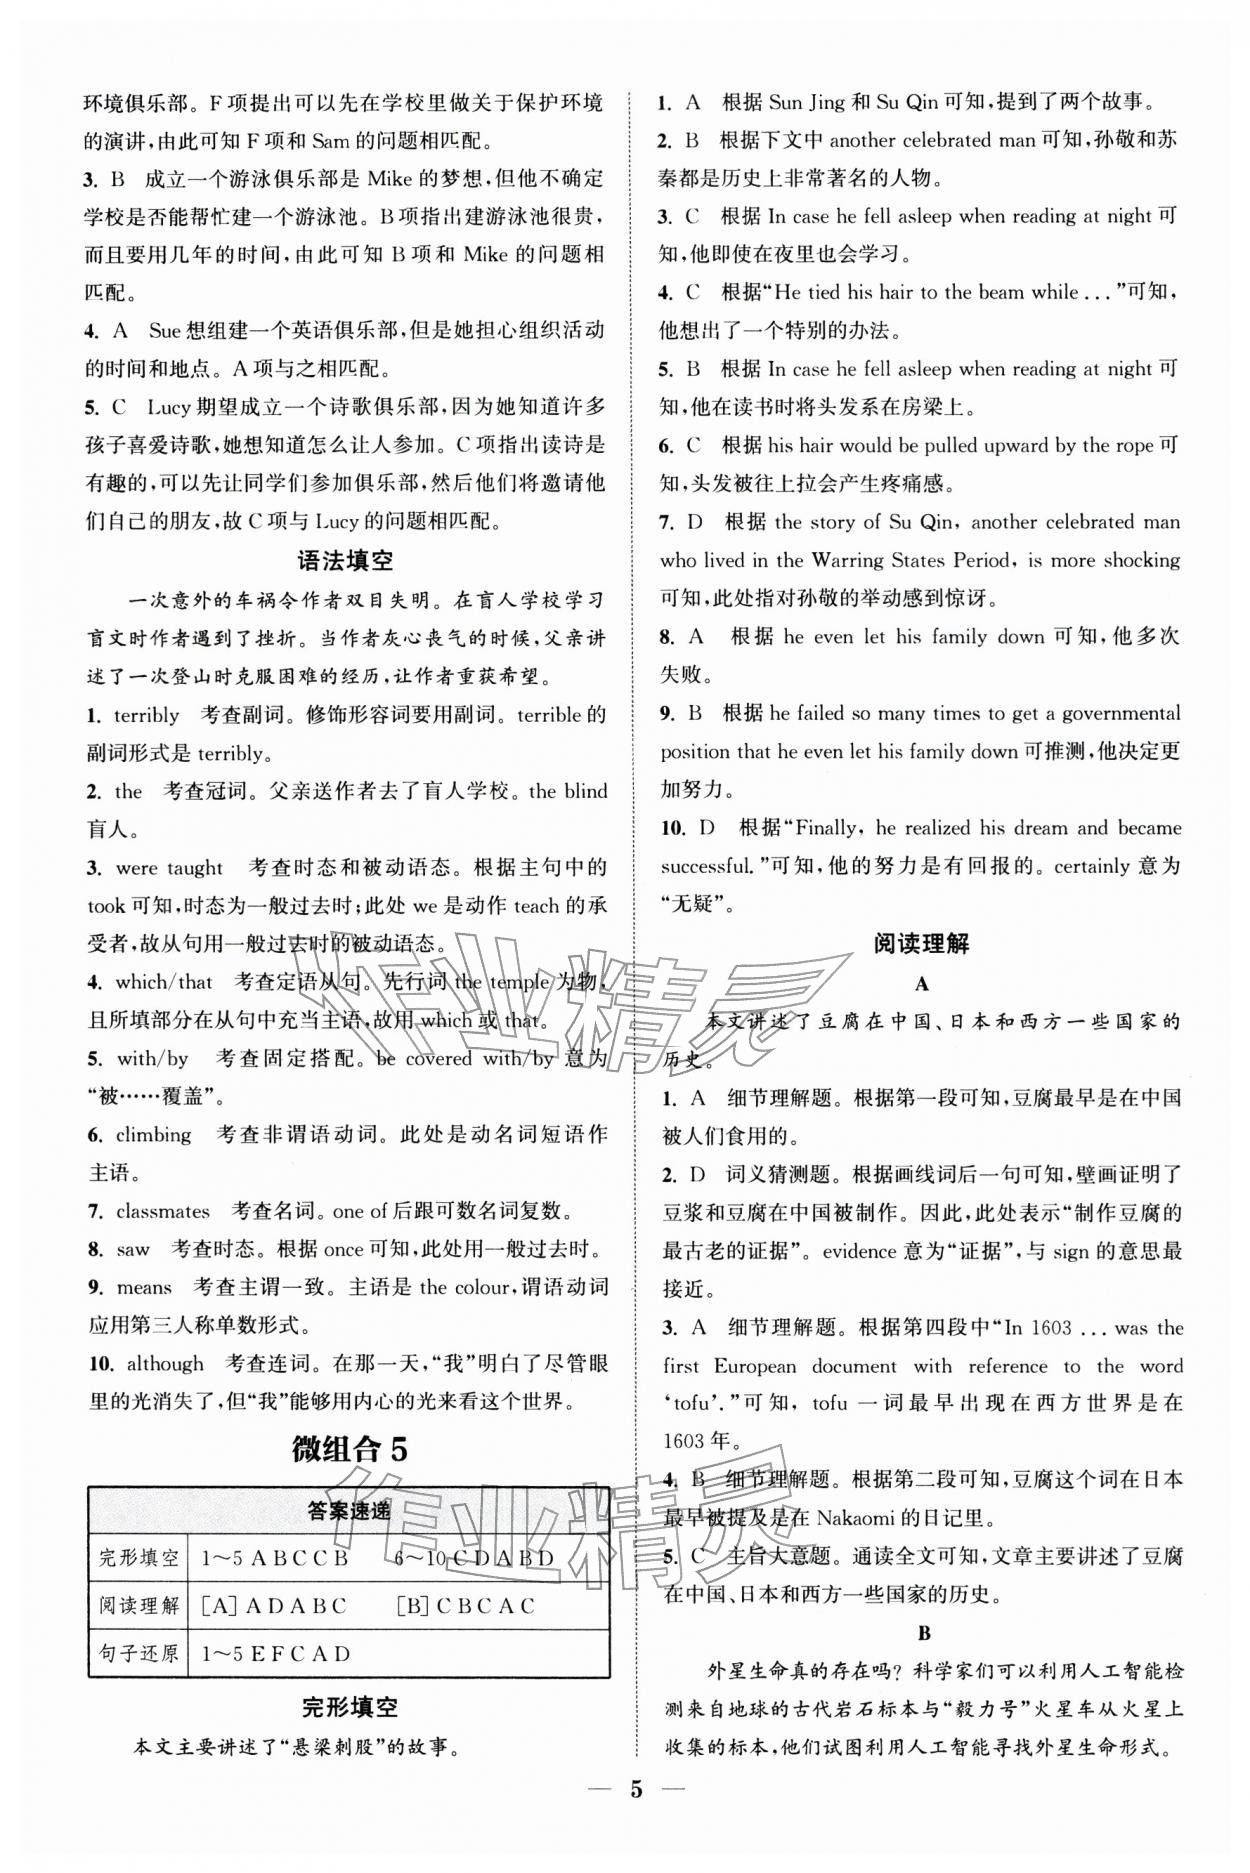 环境俱乐部。F 项提出可以先在学校里做关于保护环境
的演讲,由此可知 F 项和 Sam 的问题相匹配。
3. B 成立一个游泳俱乐部是 Mike 的梦想,但他不确定
学校是否能帮忙建一个游泳池。B 项指出建游泳池很贵,
而且要用几年的时间,由此可知 B 项和 Mike 的问题相
匹配。
4. A Sue 想组建一个英语俱乐部,但是她担心组织活动
的时间和地点。A 项与之相匹配。
5. C Lucy 期望成立一个诗歌俱乐部,因为她知道许多
孩子喜爱诗歌,她想知道怎么让人参加。C 项指出读诗是
有趣的,可以先让同学们参加俱乐部,然后他们将邀请他
们自己的朋友,故 C 项与 Lucy 的问题相匹配。
语法填空
一次意外的车祸令作者双目失明。在盲人学校学习
盲文时作者遇到了挫折。当作者灰心丧气的时候,父亲讲
述了一次登山时克服困难的经历,让作者重获希望。
1. terribly 考查副词。修饰形容词要用副词。terrible 的
副词形式是 terribly。
2. the 考查冠词。父亲送作者去了盲人学校。the blind
盲人。
3. were taught 考查时态和被动语态。根据主句中的
took 可知,时态为一般过去时;此处 we 是动作 teach 的承
受者,故从句用一般过去时的被动语态。
4. which/that 考查定语从句。先行词 the temple 为物,
且所填部分在从句中充当主语,故用 which 或 that。
5. with/by 考查固定搭配。be covered with/by 意为
“被……覆盖”。
6. climbing 考查非谓语动词。此处是动名词短语作
主语。
7. classmates 考查名词。one of 后跟可数名词复数。
8. saw 考查时态。根据 once 可知,此处用一般过去时。
9. means 考查主谓一致。主语是 the colour,谓语动词
应用第三人称单数形式。
10. although 考查连词。在那一天,“我”明白了尽管眼
里的光消失了,但“我”能够用内心的光来看这个世界。
微组合 5
答案速递
完形填空 1～5 A B C C B 6～10 C D A B D
阅读理解 [A] A D A B C [B] C B C A C
句子还原 1～5 E F C A D
完形填空
本文主要讲述了“悬梁刺股”的故事。
1. A 根据 Sun Jing 和 Su Qin 可知,提到了两个故事。
2. B 根据下文中 another celebrated man 可知,孙敬和苏
秦都是历史上非常著名的人物。
3. C 根据 In case he fell asleep when reading at night 可
知,他即使在夜里也会学习。
4. C 根据“He tied his hair to the beam while ...”可知,
他想出了一个特别的办法。
5. B 根据 In case he fell asleep when reading at night 可
知,他在读书时将头发系在房梁上。
6. C 根据 his hair would be pulled upward by the rope 可
知,头发被往上拉会产生疼痛感。
7. D 根据 the story of Su Qin, another celebrated man
who lived in the Warring States Period, is more shocking
可知,此处指对孙敬的举动感到惊讶。
8. A 根据 he even let his family down 可知,他多次
失败。
9. B 根据 he failed so many times to get a governmental
position that he even let his family down 可推测,他决定更
加努力。
10. D 根据“Finally, he realized his dream and became
successful.”可知,他的努力是有回报的。certainly 意为
“无疑”。
阅读理解
A
本文讲述了豆腐在中国、日本和西方一些国家的
历史。
1. A 细节理解题。根据第一段可知,豆腐最早是在中国
被人们食用的。
2. D 词义猜测题。根据画线词后一句可知,壁画证明了
豆浆和豆腐在中国被制作。因此,此处表示“制作豆腐的
最古老的证据”。evidence 意为“证据”,与 sign 的意思最
接近。
3. A 细节理解题。根据第四段中“In 1603 ... was the
first European document with reference to the word
‘tofu’.”可知,tofu 一词最早出现在西方世界是在
1603 年。
4. B 细节理解题。根据第二段可知,豆腐这个词在日本
最早被提及是在 Nakaomi 的日记里。
5. C 主旨大意题。通读全文可知,文章主要讲述了豆腐
在中国、日本和西方一些国家的历史。
B
外星生命真的存在吗?科学家们可以利用人工智能检
测来自地球的古代岩石标本与“毅力号”火星车从火星上
收集的标本,他们试图利用人工智能寻找外星生命形式。
— 5 —
作业精灵
作业精灵